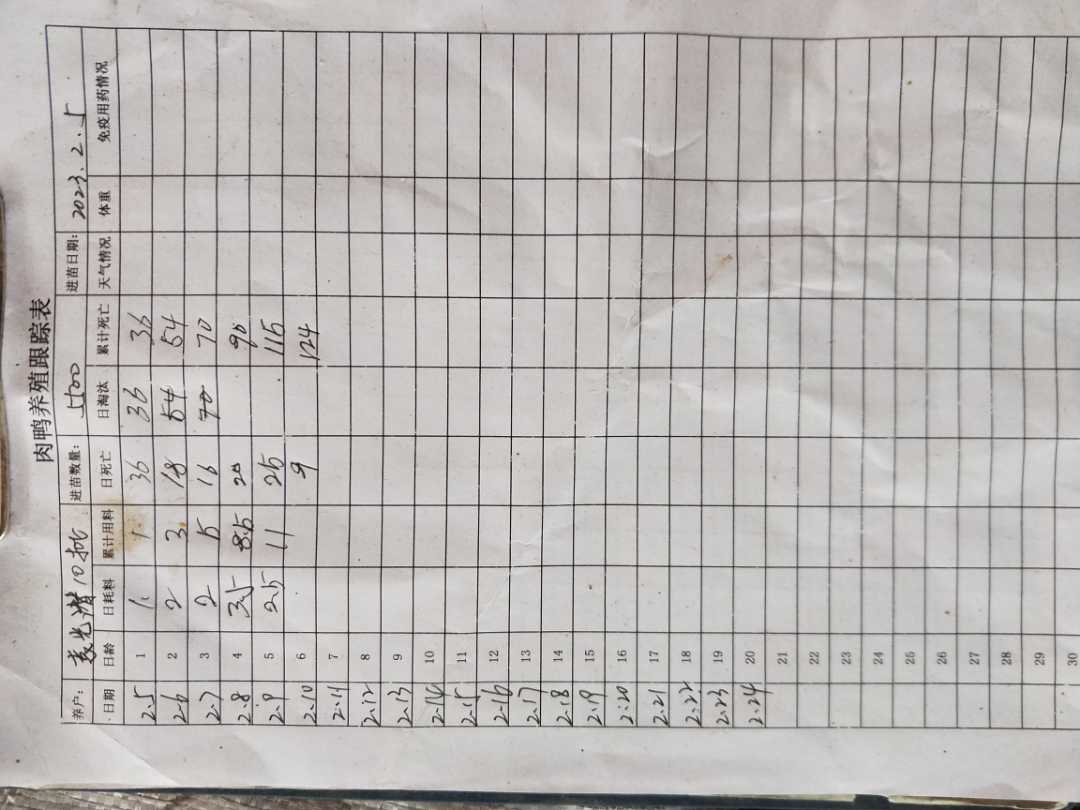 肉鸭养殖跟踪表
养户: 袁光清10批 进苗数量: 5500 进苗日期: 2023.2.5
日期 日龄 日耗料 累计用料 日死亡 日淘汰 累计死亡 天气情况 体重 免疫用药情况
2.5 1 1. 1. 36 36 36
2.6 2 2 3. 18 54 54
2.7 3 2 5 16 70 70
2.8 4 3.5 8.5 20 90
2.9 5 2.5 11 25 115
2.10 6 9 124
2.11 7
2.12 8
2.13 9
2.14 10
2.15 11
2.16 12
2.17 13
2.18 14
2.19 15
2.20 16
2.21 17
2.22 18
2.23 19
2.24 20
21
22
23
24
25
26
27
28
29
30